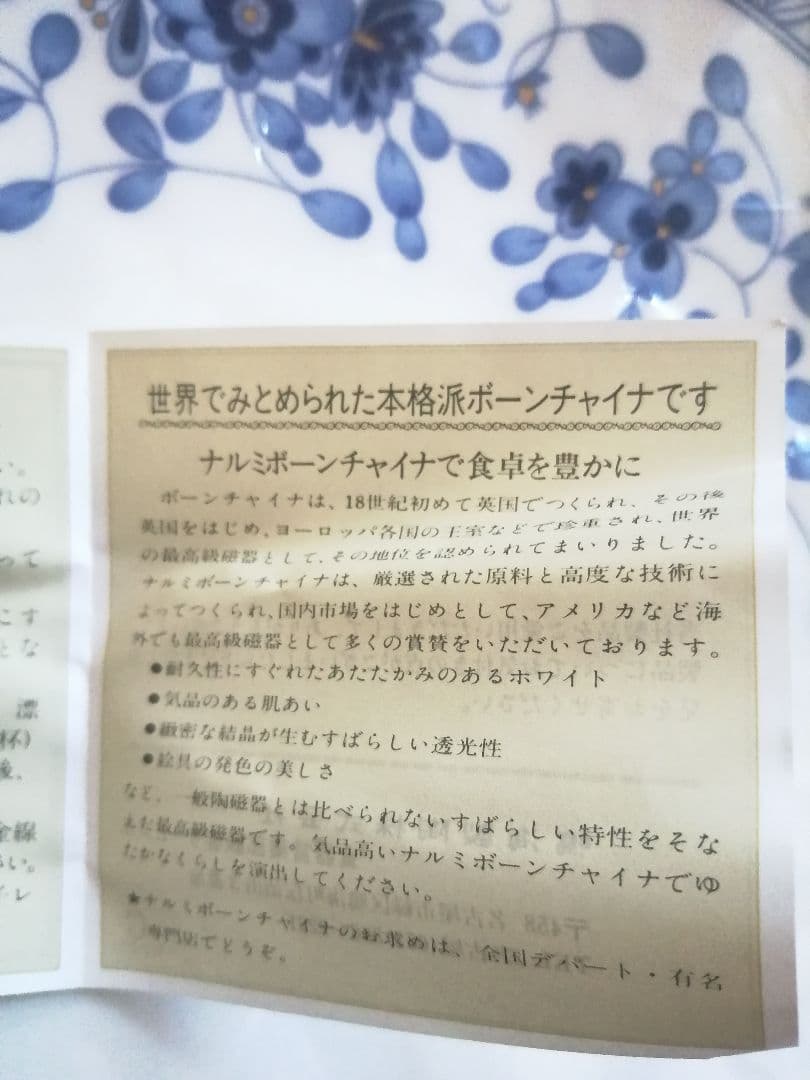 い。
れの
って
こす
とな
漂
杯)
後、
金線
さい。
イレ
世界でみとめられた本格派ボーンチャイナです
ナルミボーンチャイナで食卓を豊かに
ボーンチャイナは、18世紀初めて英国でつくられ、その後
英国をはじめ、ヨーロッパ各国の王室などで珍重され、世界
の最高級磁器として、その地位を認められてまいりました。
ナルミボーンチャイナは、厳選された原料と高度な技術に
よってつくられ、国内市場をはじめとして、アメリカなど海
外でも最高級磁器として多くの賞賛をいただいております。
●耐久性にすぐれたあたたかみのあるホワイト
●気品のある肌あい
●緻密な結晶が生むすばらしい透光性
●絵具の発色の美しさ
など、一般陶磁器とは比べられないすばらしい特性をそな
えた最高級磁器です。気品高いナルミボーンチャイナでゆ
たかなくらしを演出してください。
★ナルミボーンチャイナのお求めは、全国デパート・有名
専門店でどうぞ。
〒458 名古屋市緑区